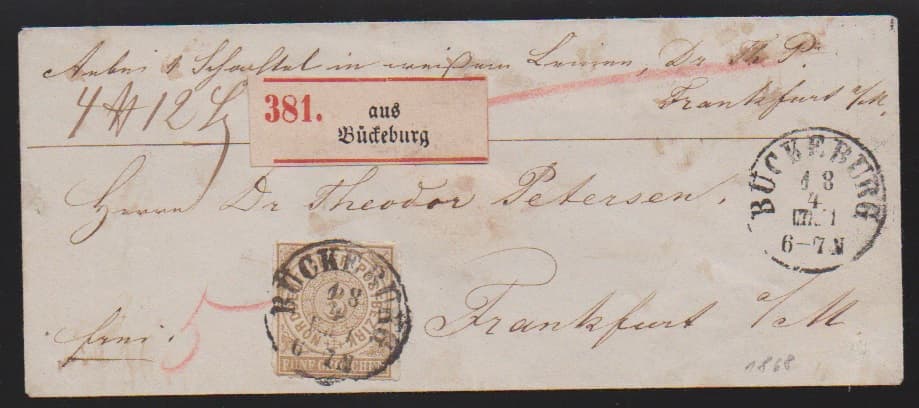 Anbei 1 Schachtel in weißem Leinen, Dr. Th. P.
Frankfurt a/M.
4 ℔ 12 L
381. aus
Bückeburg
BÜCKEBURG
18
4
6-7 N
Herrn Dr Theodor Petersen.
5
BÜCKEBURG
18
4
6 7 N
NORDD. POSTBEZIRK
FÜNF GROSCHEN
frei.
Frankfurt a/M.
1868